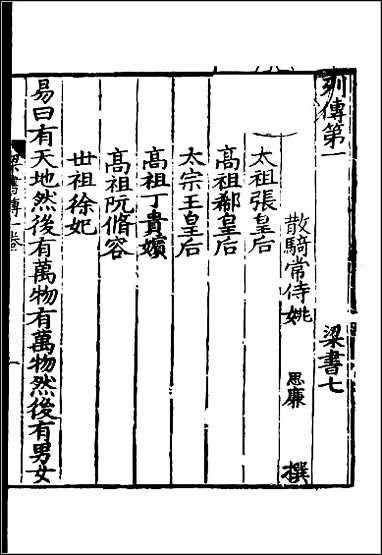 列傳第一 梁書七
散騎常侍姚 思廉 撰
太祖張皇后
高祖郗皇后
太宗王皇后
高祖丁貴嬪
高祖阮脩容
世祖徐妃
易曰有天地然後有萬物有萬物然後有男女
梁書傳一卷 一